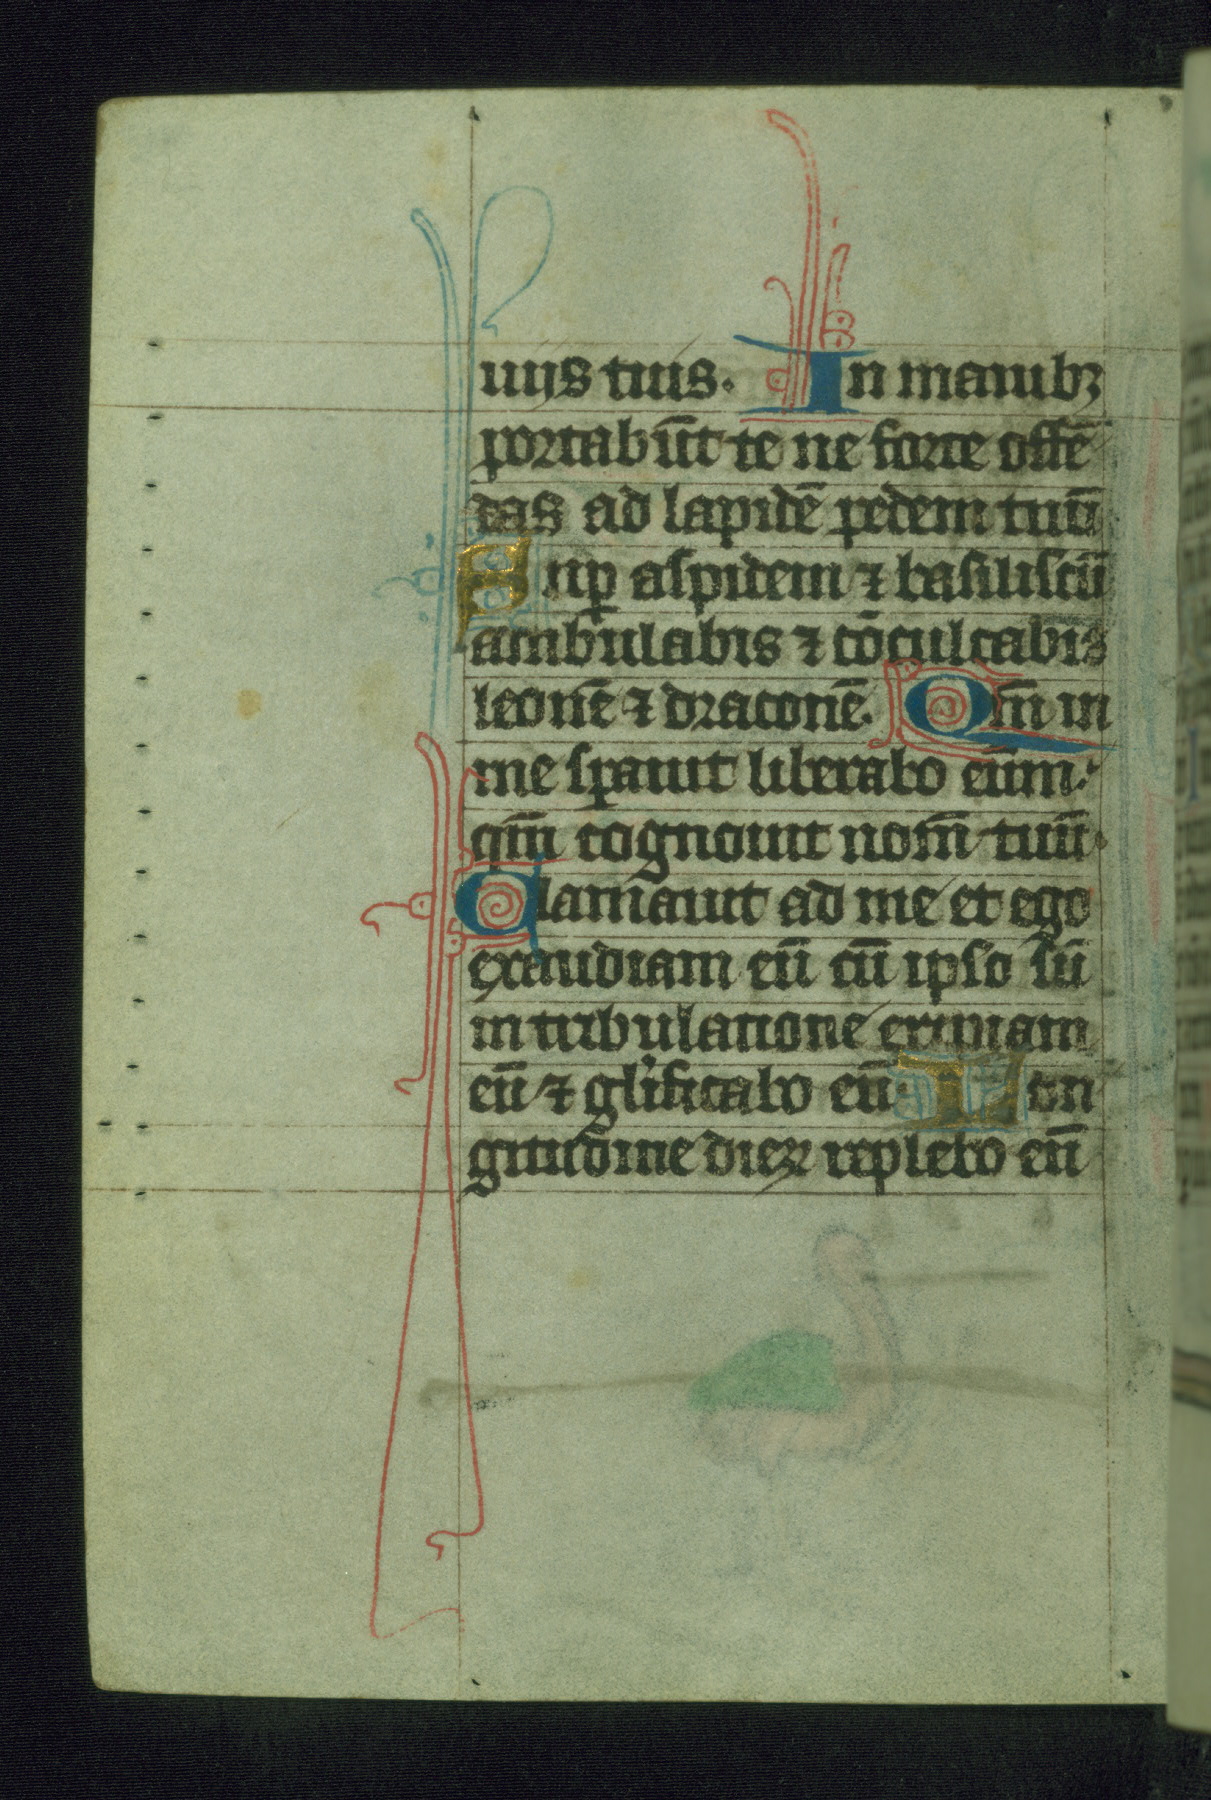 uijs tuis. In manibꝫ
portabūt te ne forte offē
das ad lapidē pedem tuū
Sup̱ aspidem ⁊ basiliscū
ambulabis ⁊ cōculcabis
leonē ⁊ draconē. Qm̄ in
me sꝑauit liberabo eūm.
qm̄ cognouit nom̄ tuū.
Clamauit ad me et ego
exaudiam eū cū ipso sū
in tribulatione eripiam
eū ⁊ glīficabo eū. Lon
gitudine dieꝝ replebo eū